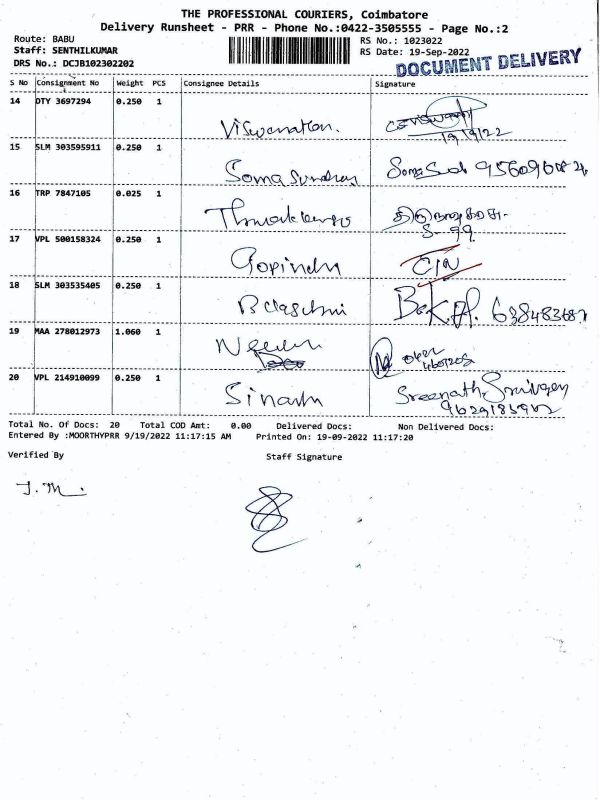 THE PROFESSIONAL COURIERS, Coimbatore
Delivery Runsheet - PRR - Phone No.:0422-3505555 - Page No.:2
Route: BABU
RS No.: 1023022
Staff: SENTHILKUMAR
RS Date: 19-Sep-2022
DRS No.: DCJB102302202
DOCUMENT DELIVERY
S No Consignment No Weight PCS Consignee Details Signature
14 DTY 3697294 0.250 1
Viswanathan.
19/9/22
15 SLM 303595911 0.250 1
Somasundram
16 TRP 7847105 0.025 1
S-99
17 VPL 500158324 0.250 1
Gopindh
18 SLM 303535405 0.250 1
19 MAA 278012973 1.060 1
0422
20 VPL 214910099 0.250 1
Sreenath
Total No. Of Docs: 20 Total COD Amt: 0.00 Delivered Docs: Non Delivered Docs:
Entered By :MOORTHYPRR 9/19/2022 11:17:15 AM Printed On: 19-09-2022 11:17:20
Verified By Staff Signature
J. M.